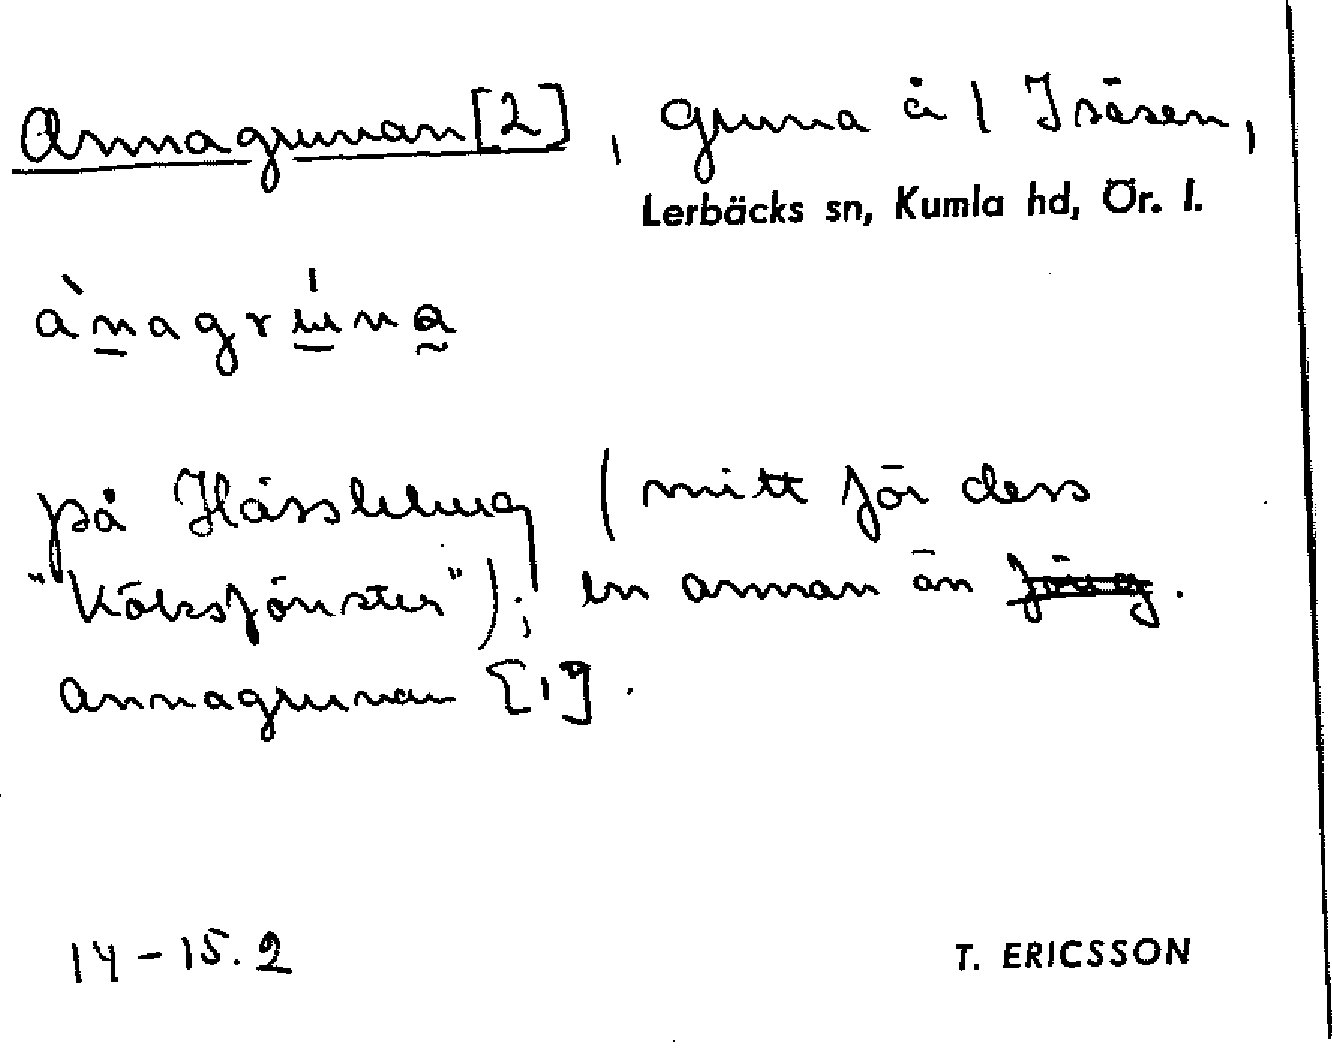 Annagrunan [2], gruna å / Isåsen,
Lerbäcks sn, Kumla hd, Ör. l.
ànagrúna
på Hässleberg (mitt för dess
"Köksfönster"); en annan än föreg.
annagrunan [1].
14-15.2
T. ERICSSON